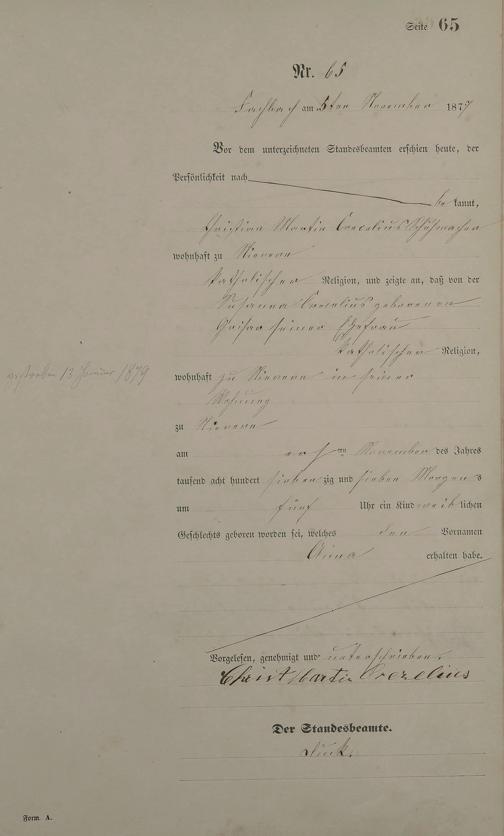 Seite 65
Nr. 65
Fachbach am 5ten November 1877
Vor dem unterzeichneten Standesbeamten erschien heute, der
Persönlichkeit nach
be kannt,
Christian Martin Crecelius Schuhmacher
wohnhaft zu Nievern
katholischer Religion, und zeigte an, daß von der
Susanna Crecelius geborenen
seiner Ehefrau
katholischer Religion,
wohnhaft zu Nievern in seiner
Wohnung
verstorben 13 Januar 1879
zu Nievern
am ersten November des Jahres
tausend acht hundert sieben zig und sieben Morgens
um fünf Uhr ein Kind weiblichen
Geschlechts geboren worden sei, welches den Vornamen
Anna erhalten habe.
Vorgelesen, genehmigt und unterschrieben.
Christ Martin Crezelius
Der Standesbeamte.
Form. A.